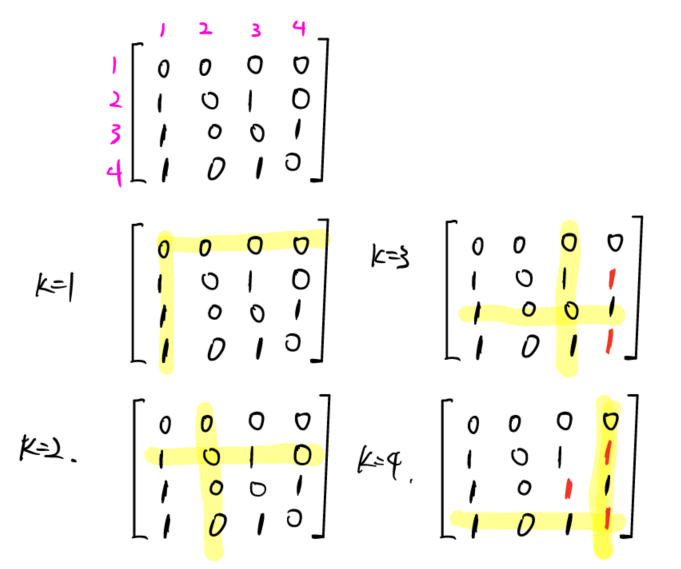 1 2 3 4
1 0 0 0 0
2 1 0 1 0
3 1 0 0 1
4 1 0 1 0
K=1
0 0 0 0
1 0 1 0
1 0 0 1
1 0 1 0
K=3
0 0 0 0
1 0 1 1
1 0 0 1
1 0 1 1
K=2.
0 0 0 0
1 0 1 0
1 0 0 1
1 0 1 0
K=4.
0 0 0 0
1 0 1 1
1 0 1 1
1 0 1 1